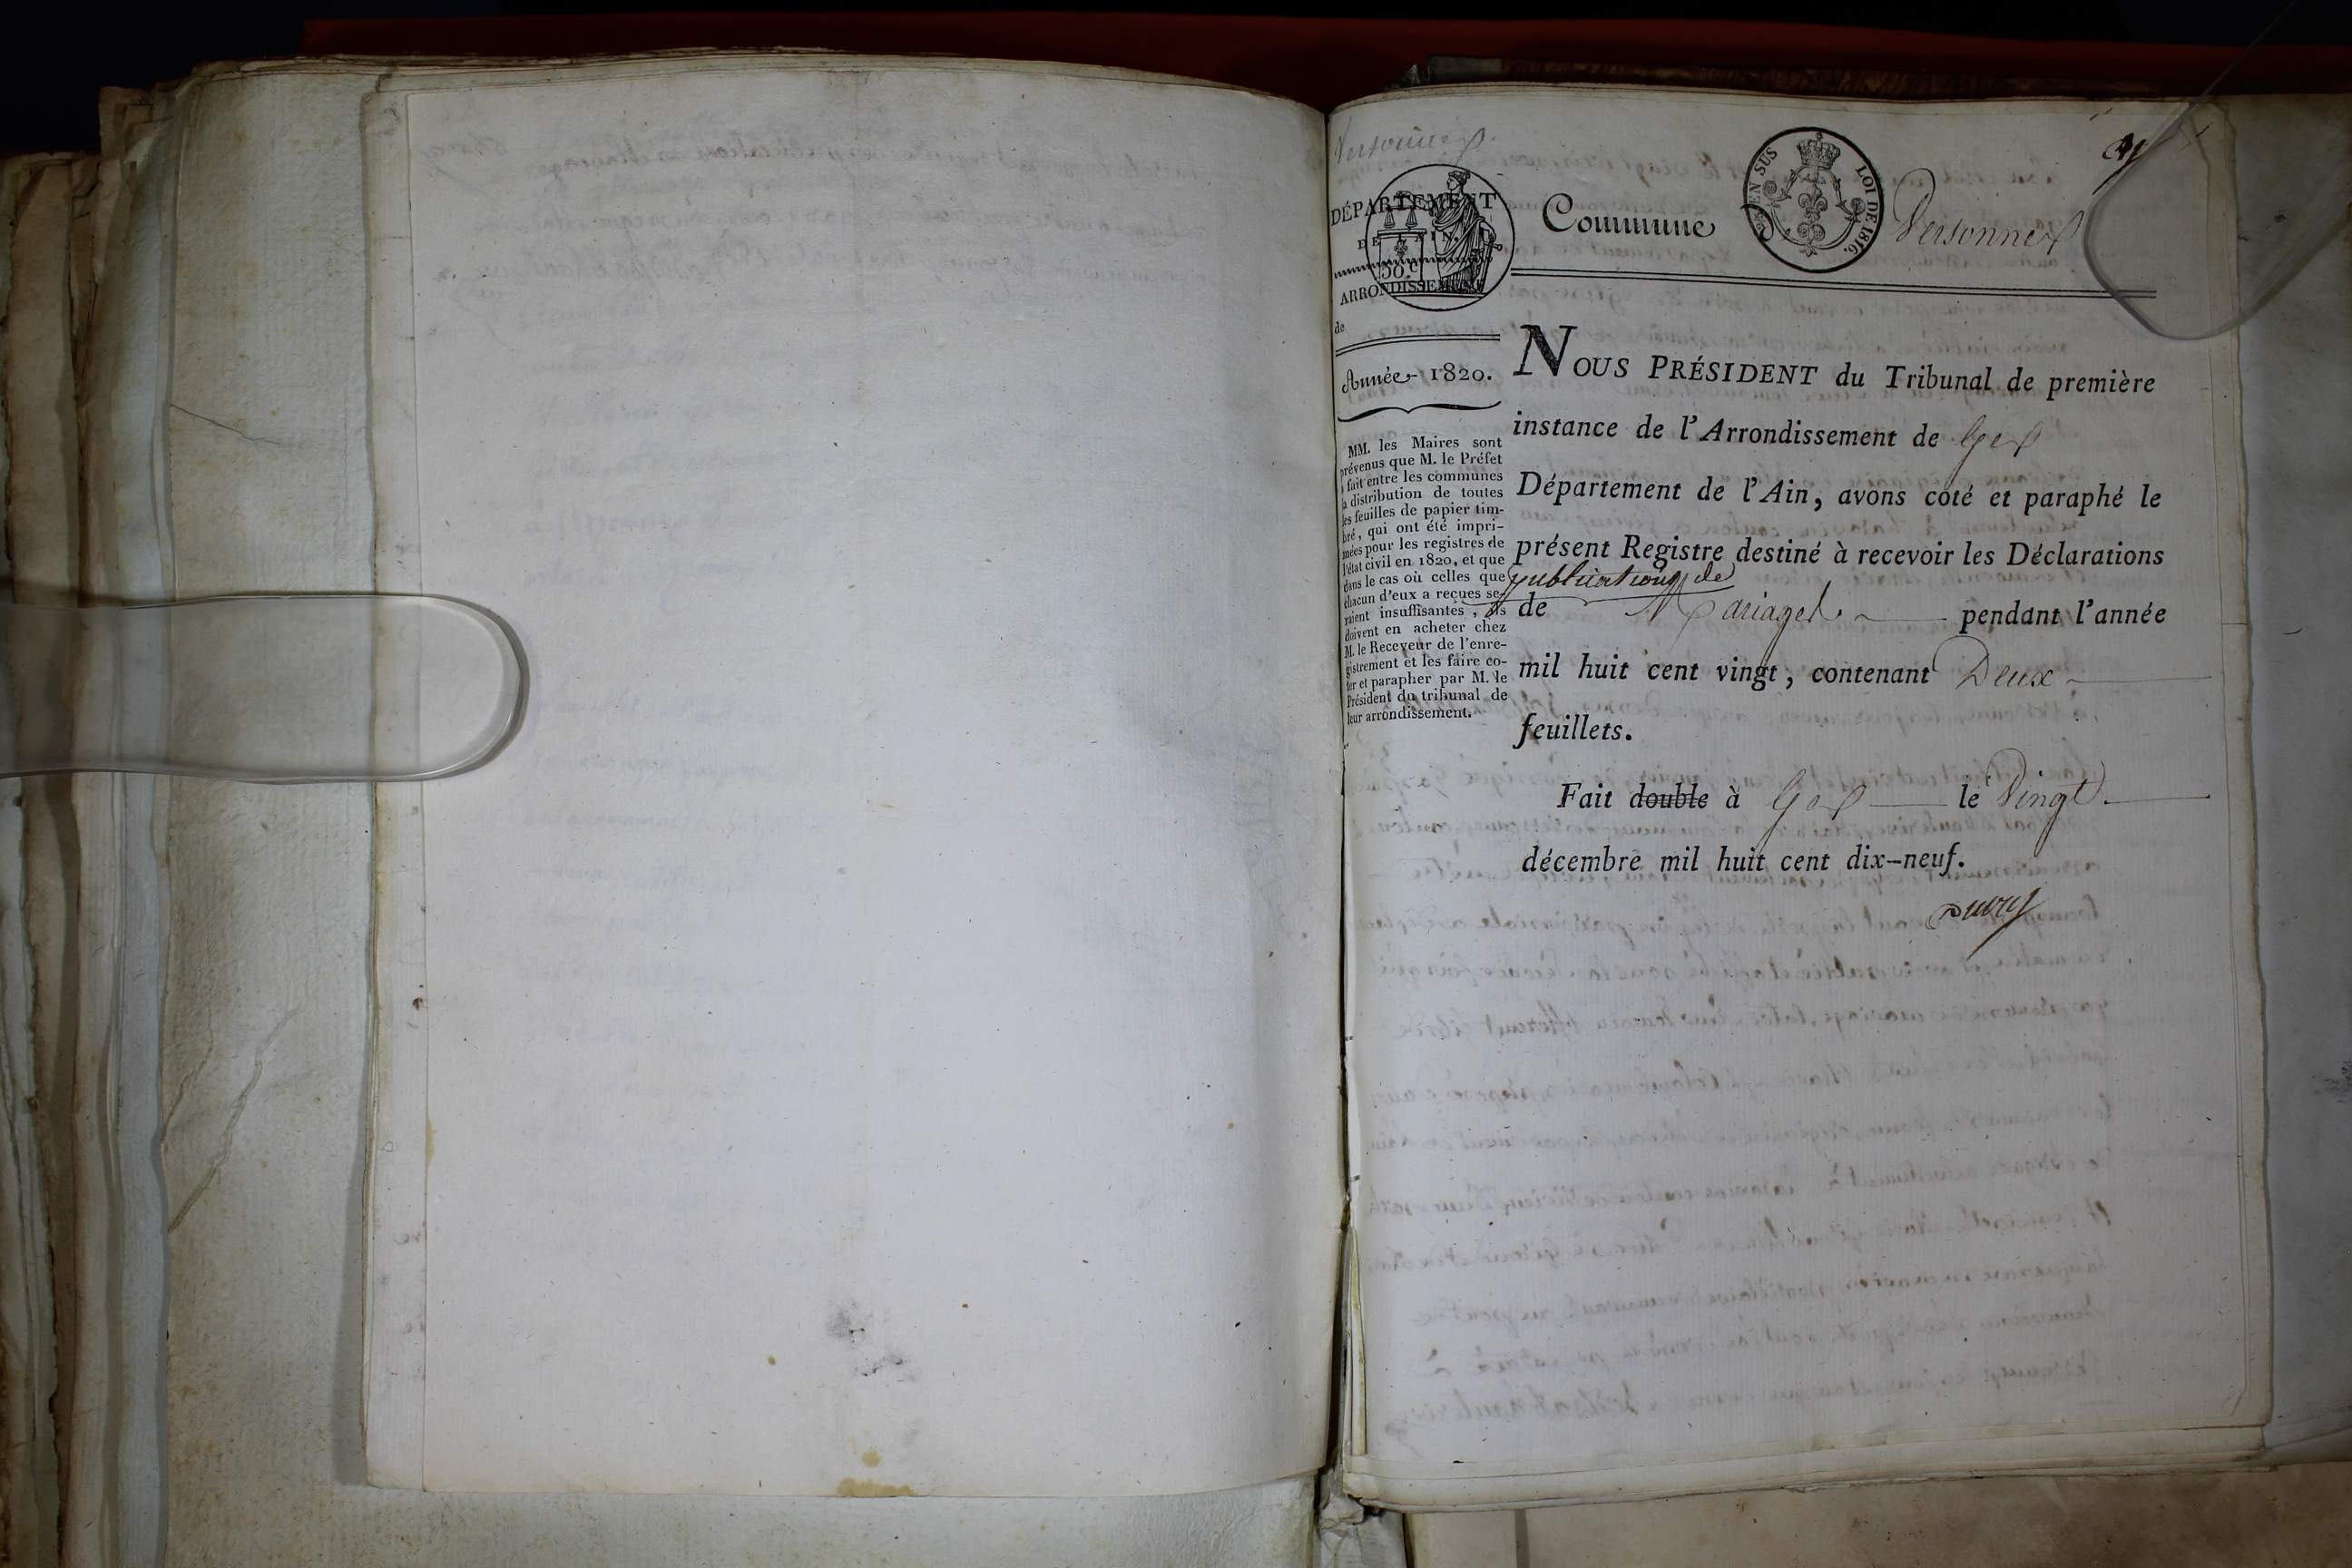 Versonnex
DÉPARTEMENT
DE L'AIN.
50 c.
ARRONDISSEMENT
de
EN SUS
LOI DE 1816.
Commune Versonnex
Année 1820.
MM. les Maires sont
prévenus que M. le Préfet
a fait entre les communes
la distribution de toutes
les feuilles de papier tim-
bré, qui ont été impri-
mées pour les registres de
l'état civil en 1820, et que
dans le cas où celles que
chacun d'eux a reçues se-
raient insuffisantes, ils
doivent en acheter chez
M. le Receveur de l'enre-
gistrement et les faire co-
ter et parapher par M. le
Président du tribunal de
leur arrondissement.
NOUS PRÉSIDENT du Tribunal de première
instance de l'Arrondissement de Gex
Département de l'Ain, avons coté et paraphé le
présent Registre destiné à recevoir les Déclarations
publications de
de Mariages pendant l'année
mil huit cent vingt, contenant Deux
feuillets.
Fait double à Gex le Vingt
décembre mil huit cent dix-neuf.